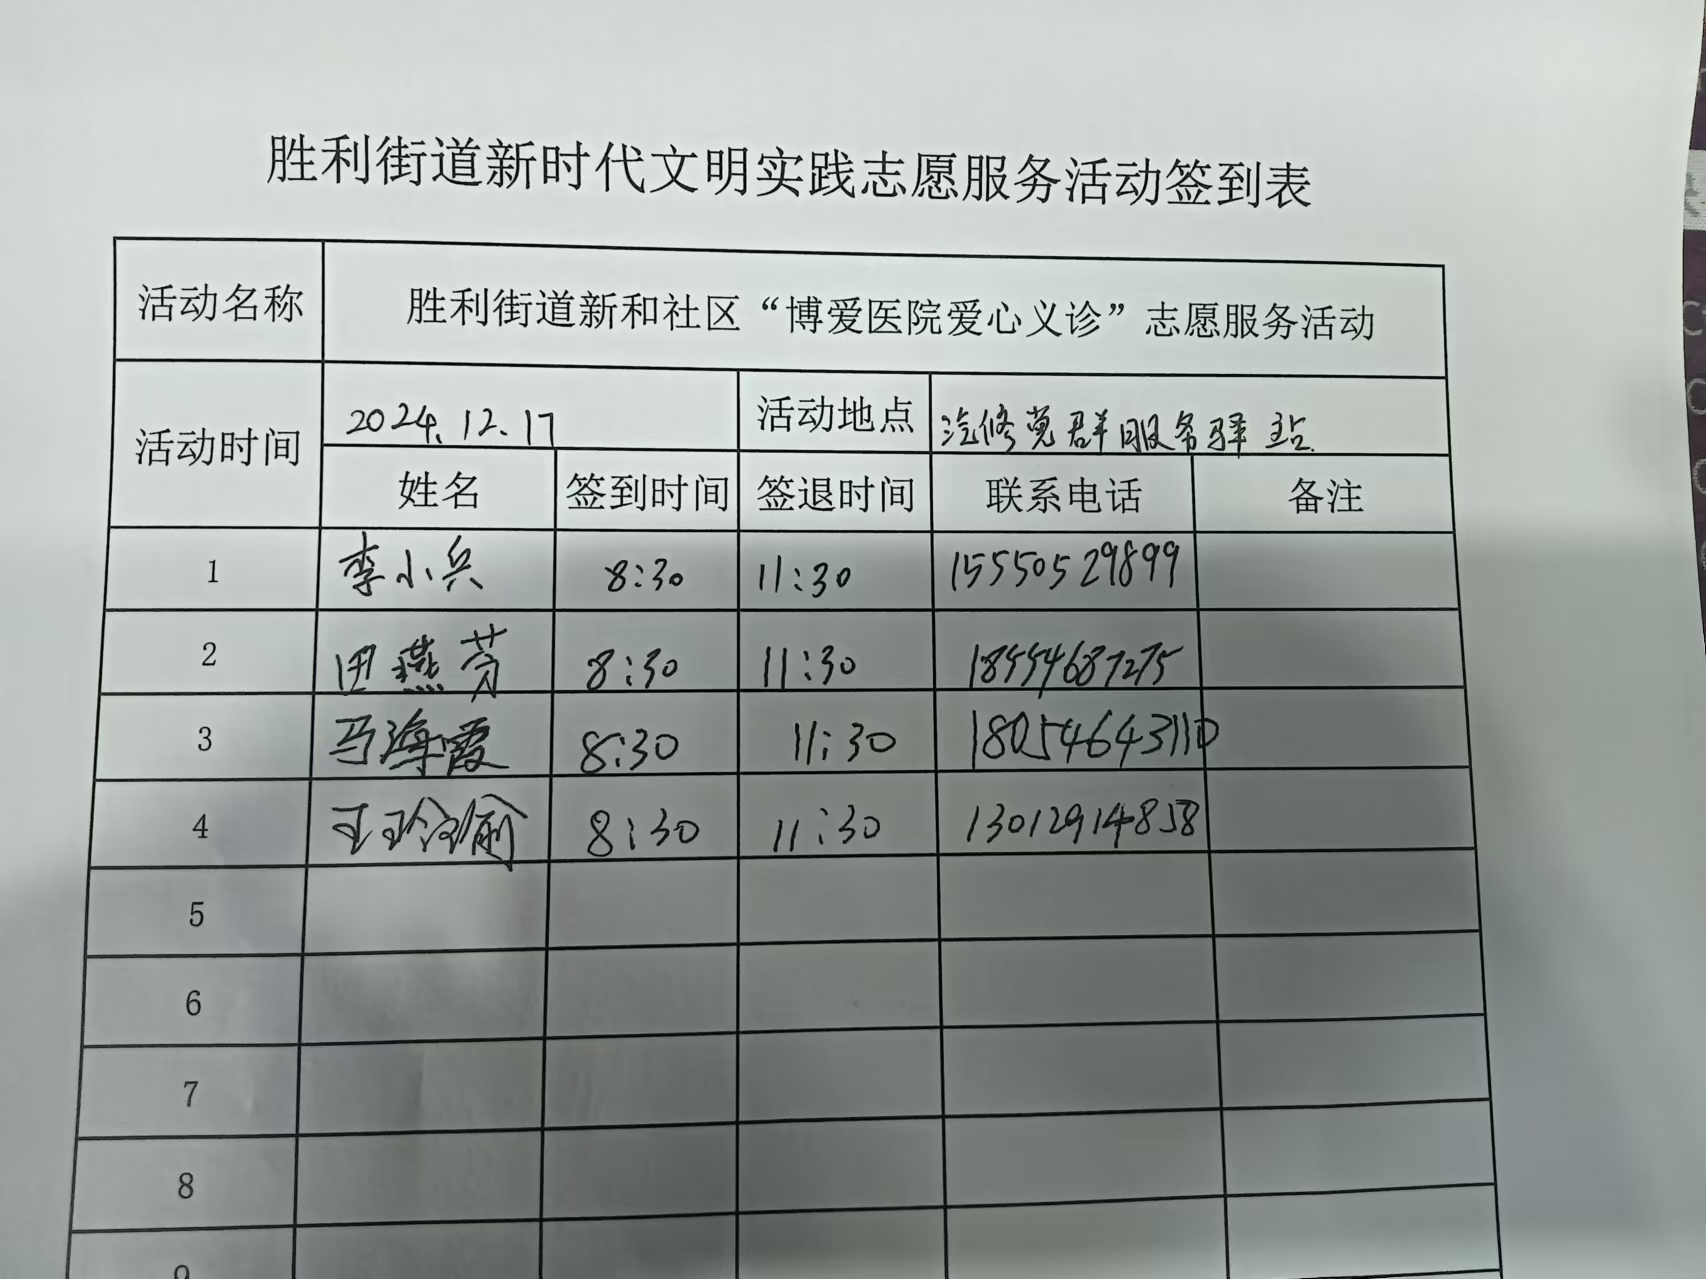 胜利街道新时代文明实践志愿服务活动签到表
活动名称 胜利街道新和社区“博爱医院爱心义诊”志愿服务活动
活动时间 2024.12.17 活动地点 汽修党群服务驿站
姓名 签到时间 签退时间 联系电话 备注
1 李小兵 8:30 11:30 15550529899
2 田燕芳 8:30 11:30 18554687275
3 马海霞 8:30 11:30 18054643110
4 8:30 11:30 13012914858
5
6
7
8
9